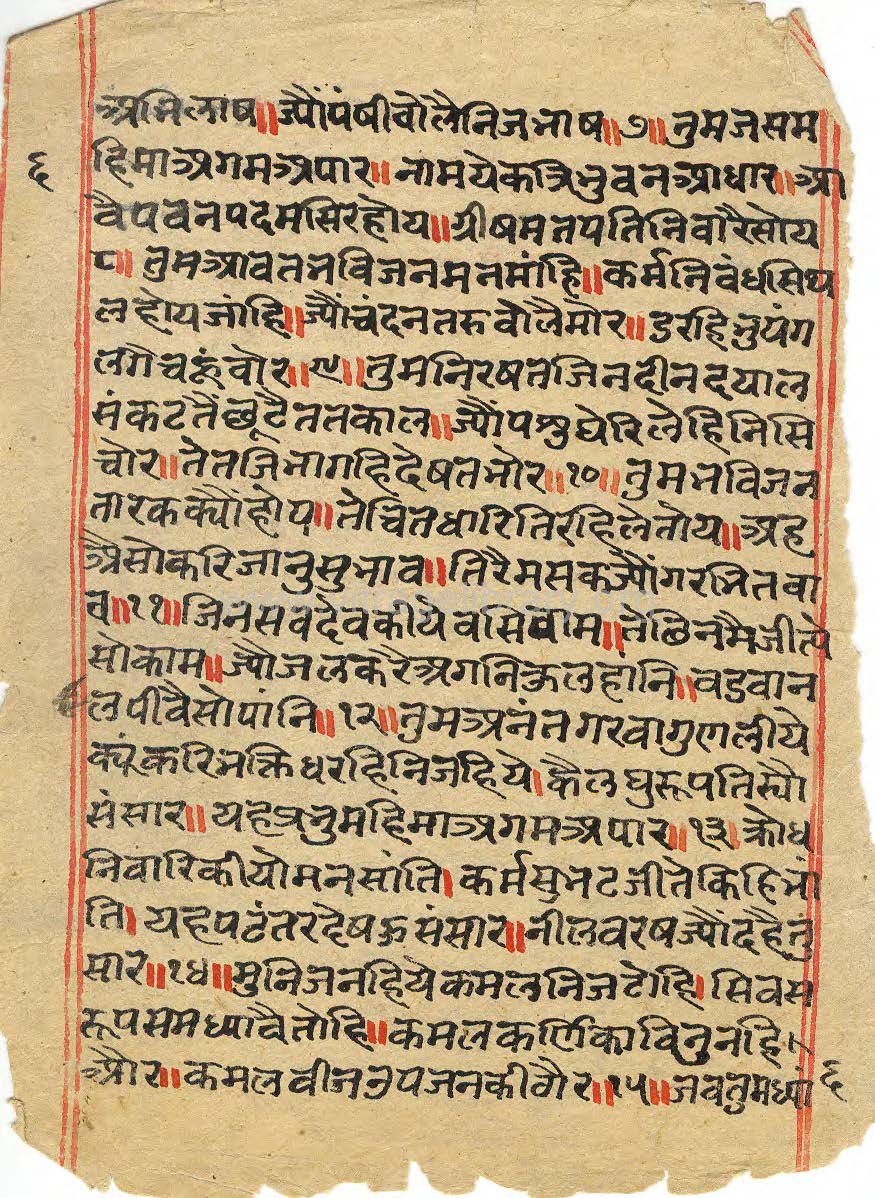 अभिलाष॥ ज्यौंपंषीवोलैनिजभाष॥७॥ तुमजसम
६ हिमाअगमअपार॥ नामयेकत्रिभुवनआधार॥आ
वैपवनपदमसिरहोय॥ग्रीषमतपतिनिवारैसोय
८॥ तुमआवतभविजनमनमांहि॥कर्मनिवंधसिथ
लहोयजांहि॥ज्यौंचंदनतरुवोलैमोर॥डरहिभुयंग
लगैचहूंवोर॥९॥तुमनिरषतजिनदीनदयाल
संकटतैंछूटैततकाल॥ज्यौंपशुघेरिलेहिनिसि
चोर॥तेतजिभागहिदेषतभोर॥१०॥तुमभविजन
तारकक्यौंहोय॥तेचितधारितिरहिलेतोय॥अह
अैसोकरिजानुसुभाव॥तिरैमसकज्यौंगरभितवा
व॥११॥जिनसवदेवकीयेवसिवाम॥तेछिनमैजीत्ये
सोकाम॥ज्यौजलकरैअगनिकुलहांनि॥वडवान
लपीवैसोपांनि॥१२॥तुमअनंतगरवागुणलीये
क्यूंकरिभक्तिधरहिनिजहिये।कैलघुरूपतिरयौ
संसार॥यहप्रभुमहिमाअगमअपार॥१३॥क्रोध
निवारिकीयोमनसांति।कर्मसुभटजीतेकिहिभां
ति।यहपटंतरदेषऊसंसार॥नीलवरषज्यौंदहैतु
सार॥१४॥मुनिजनहियेकमलनिजटोहि।सिवस
रूपसमध्यावैतोहि॥कमलकर्णिकाविनुनहि
और॥कमलवीजउपजनकीठौर॥१५॥जवतुमध्यां ६